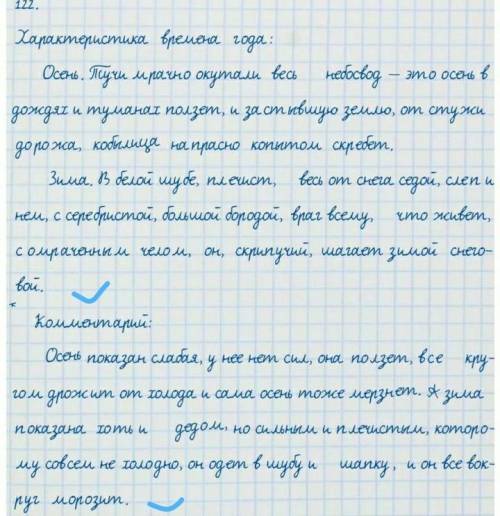 122.
Характеристика времена года:
Осень. Тучи мрачно окутали весь небосвод – это осень в
дождях и туманах ползет, и застывшую землю, от стужи
дорожа, кобылица напрасно копытом скребет.
Зима. В белой шубе, плечист, весь от снега седой, слеп и
нем, с серебристой, большой бородой, враг всему, что живет,
с омраченным челом, он, скрипучий, шагает зимой снего-
вой.
*
Комментарий:
Осень показан слабая, у нее нет сил, она ползет, все кру-
гом дрожит от холода и сама осень тоже мерзнет. А зима
показана хоть и дедом, но сильным и плечистым, которо-
му совсем не холодно, он одет в шубу и шапку, и он все вок-
руг морозит.